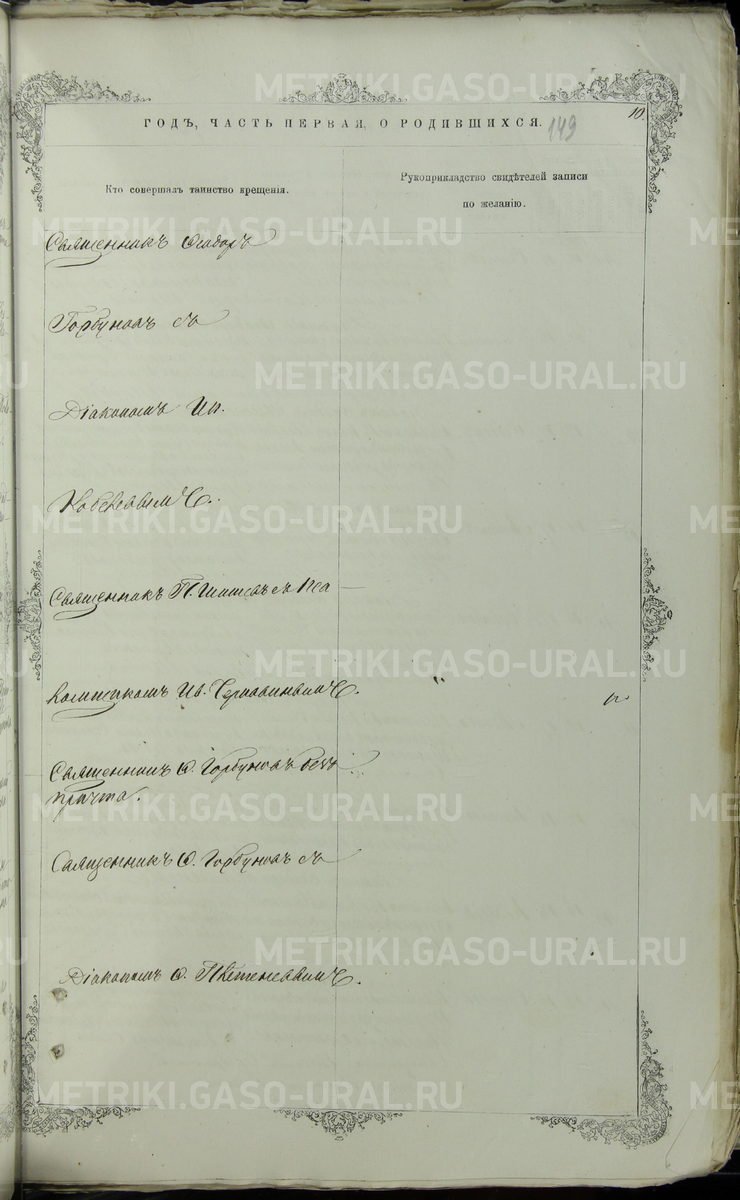 METRIKI.GASO-URAL.RU
10.
ГОДЪ, ЧАСТЬ ПЕРВАЯ, О РОДИВШИХСЯ.
149
Кто совершалъ таинство крещенія.
Рукоприкладство свидѣтелей записи
по желанію.
Священникъ Ѳеодоръ
Горбуновъ съ
Діакономъ Ип.
Священникъ П. Шишовъ съ Пса
ломщикомъ Ив.
Священникъ Ѳ. Горбуновъ безъ
причта.
Священникъ Ѳ. Горбуновъ съ
Діакономъ